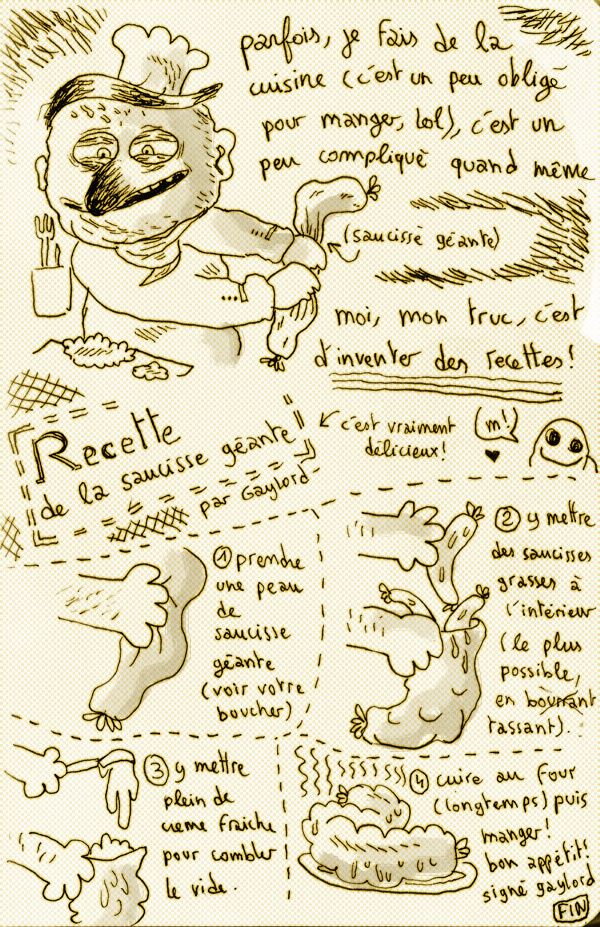 parfois, je fais de la
cuisine (c'est un peu obligé
pour manger, lol), c'est un
peu compliqué quand même
(saucisse géante)
moi, mon truc, c'est
d'inventer des recettes!
Recette
de la saucisse géante
par Gaylord
c'est vraiment
délicieux!
m!
1 prendre
une peau
de
saucisse
géante
(voir votre
boucher)
2 y mettre
des saucisses
grasses à
l'intérieur
(le plus
possible,
en bourrant
tassant).
3 y mettre
plein de
creme fraiche
pour combler
le vide.
4 cuire au four
(longtemps) puis
manger!
bon appétit!
signé gaylord
FIN